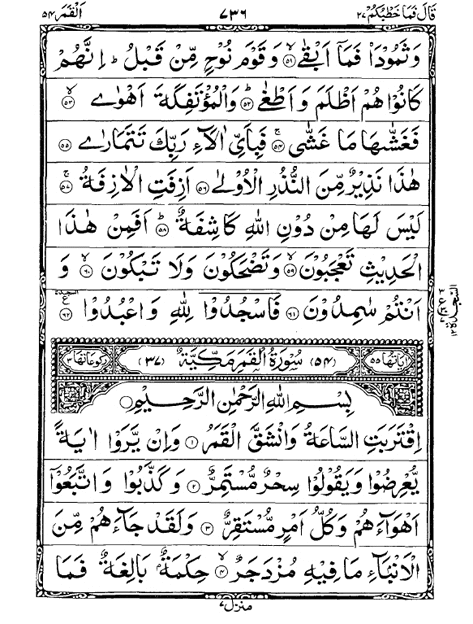 قَالَ فَمَا خَطْبُكُمْ ٢٧ ٧٣٦ اَلْقَمَر ٥٤
وَثَمُوْدَا۠ فَمَاۤ اَبْقٰى ۙ﴿۵۱﴾ وَقَوْمَ نُوْحٍ مِّنْ قَبْلُ ؕ اِنَّهُمْ
كَانُوْا هُمْ اَظْلَمَ وَاَطْغٰى ؕ﴿۵۲﴾ وَالْمُؤْتَفِكَةَ اَهْوٰى ۙ﴿۵۳﴾
فَغَشّٰىهَا مَا غَشّٰى ۚ﴿۵۴﴾ فَبِاَيِّ اٰلَآءِ رَبِّكَ تَتَمَارٰى ﴿۵۵﴾
هٰذَا نَذِيْرٌ مِّنَ النُّذُرِ الْاُوْلٰى ﴿۵۶﴾ اَزِفَتِ الْاٰزِفَةُ ۚ﴿۵۷﴾
لَيْسَ لَهَا مِنْ دُوْنِ اللّٰهِ كَاشِفَةٌ ؕ﴿۵۸﴾ اَفَمِنْ هٰذَا
الْحَدِيْثِ تَعْجَبُوْنَ ۙ﴿۵۹﴾ وَتَضْحَكُوْنَ وَلَا تَبْكُوْنَ ۙ﴿۶۰﴾ وَ
اَنْتُمْ سٰمِدُوْنَ ﴿۶۱﴾ فَاسْجُدُوْا لِلّٰهِ وَاعْبُدُوْا ﴿۶۲﴾
اٰيَاتُهَا ٥٥ (٥٤) سُوْرَةُ الْقَمَرِ مَكِّيَّةٌ (٣٧) رُكُوْعَاتُهَا ٣
بِسْمِ اللّٰهِ الرَّحْمٰنِ الرَّحِيْمِ
اِقْتَرَبَتِ السَّاعَةُ وَانْشَقَّ الْقَمَرُ ﴿۱﴾ وَاِنْ يَّرَوْا اٰيَةً
يُّعْرِضُوْا وَيَقُوْلُوْا سِحْرٌ مُّسْتَمِرٌّ ﴿۲﴾ وَكَذَّبُوْا وَاتَّبَعُوْۤا
اَهْوَآءَهُمْ وَكُلُّ اَمْرٍ مُّسْتَقِرٌّ ﴿۳﴾ وَلَقَدْ جَآءَهُمْ مِّنَ
الْاَنْۢبَآءِ مَا فِيْهِ مُزْدَجَرٌ ۙ﴿۴﴾ حِكْمَةٌۢ بَالِغَةٌ فَمَا
منزل ٧